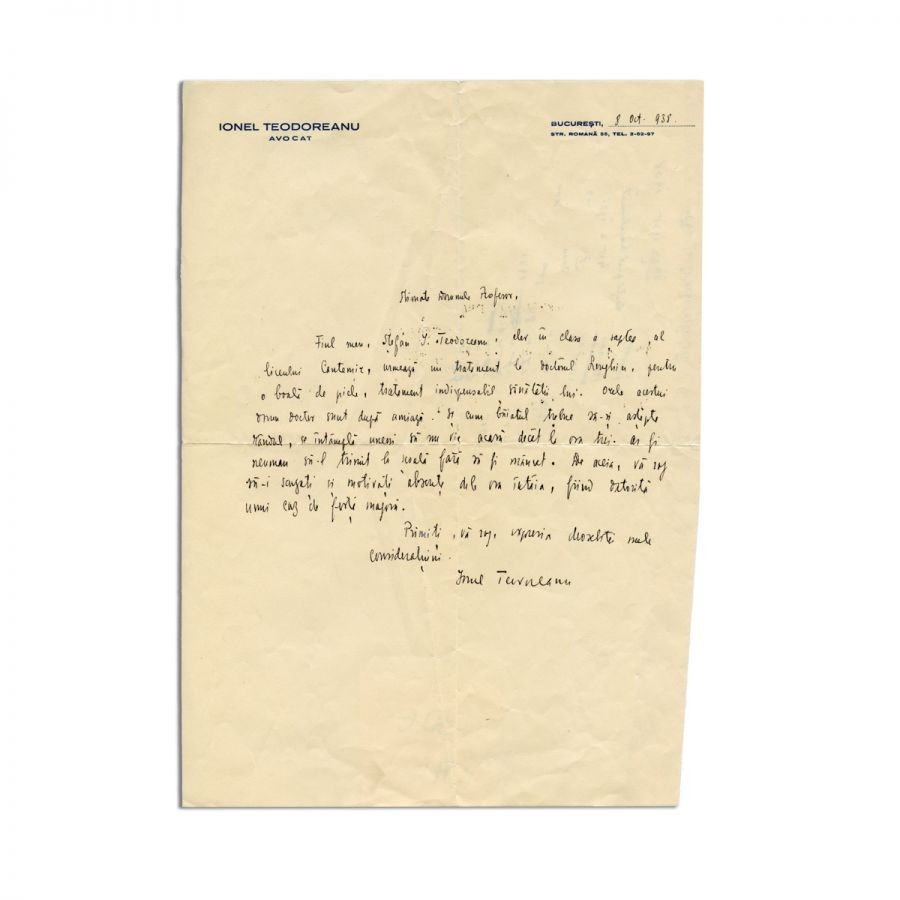 IONEL TEODOREANU
AVOCAT
BUCUREȘTI, 8 Oct. 938.
STR. ROMANĂ 55, TEL. 2-62-97
Stimate Domnule Profesor,
Fiul meu, Ștefan I. Teodoreanu, elev în clasa a șaptea, al
liceului Cantemir, urmează un tratament la doctorul pentru
o boală de piele, tratament indispensabil sănătății lui. Orele acestui
domn doctor sunt după amiază. Și cum băiatul trebue să-și aștepte
rândul, se întâmplă uneori să nu vie acasă decât la ora trei. Ar fi
neuman să-l trimit la școală fără să fi mâncat. De aceia, vă rog
să-i scuzați și motivați absența dela ora întâia, fiind datorită
unui caz de forță majoră.
Primiți, vă rog, expresia deosebitei mele
considerațiuni.
Ionel Teodoreanu